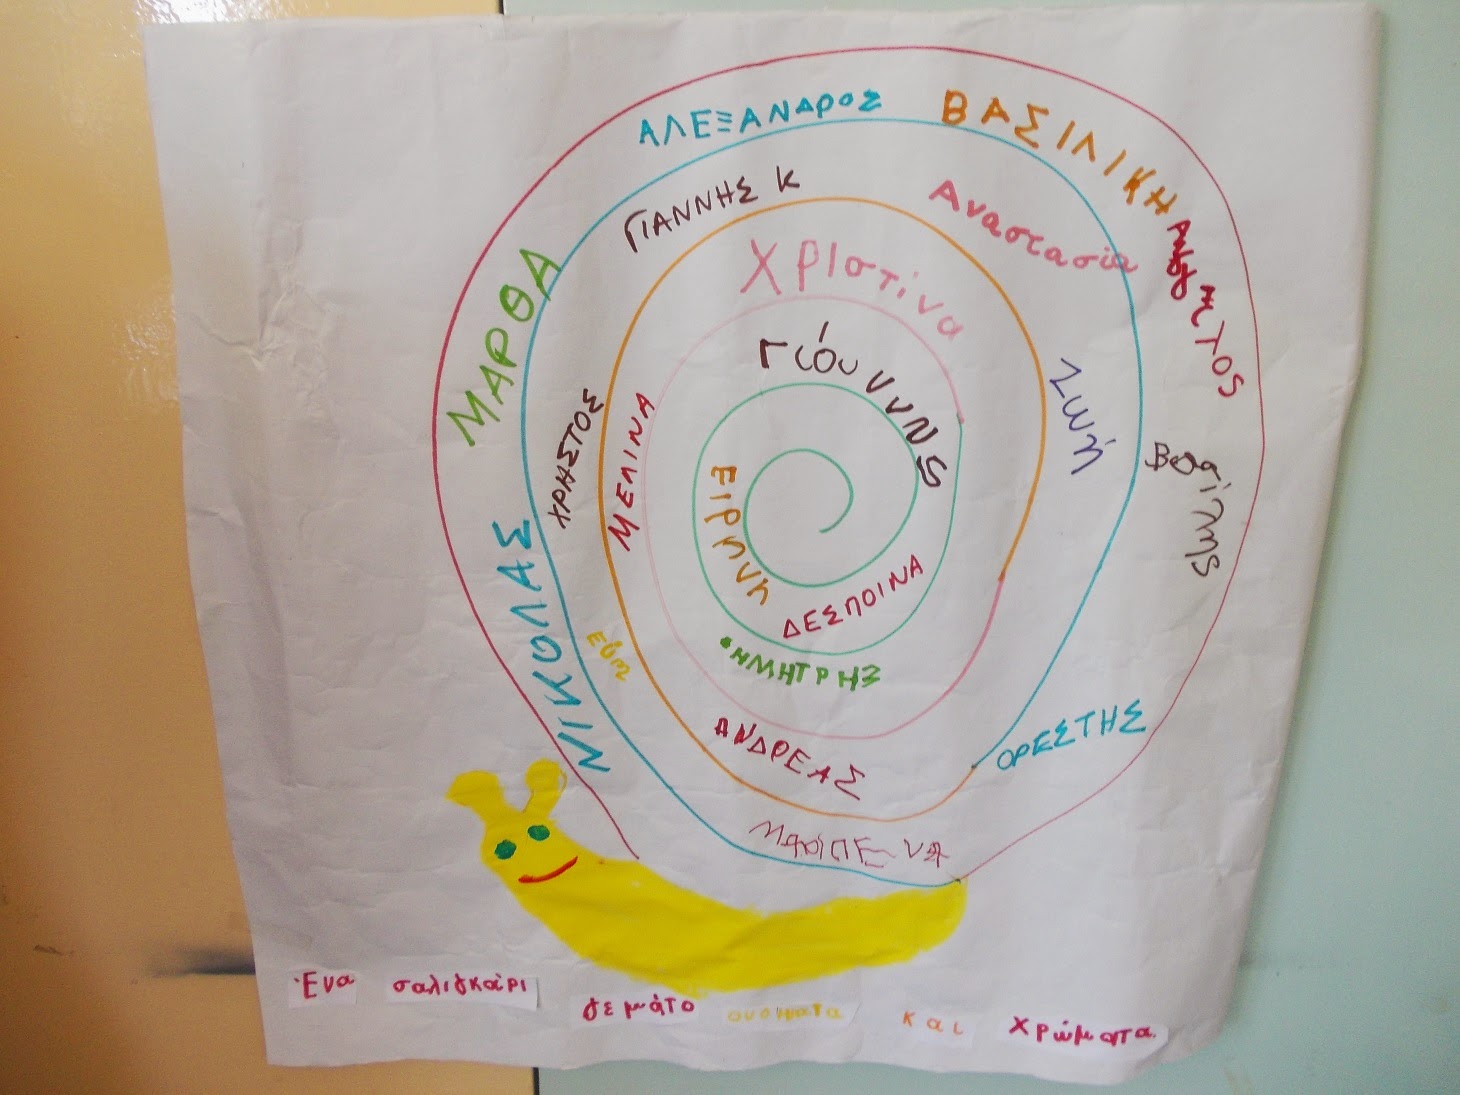 ΑΛΕΞΑΝΔΡΟΣ
ΒΑΣΙΛΙΚΗ
ΜΑΡΘΑ
ΓΙΑΝΝΗΣ Κ
Αναστασία
Χριστίνα
Ζωή
Βασίλης
ΧΡΗΣΤΟΣ
ΜΕΛΙΝΑ
ΕΙΡΗΝΗ
ΔΕΣΠΟΙΝΑ
ΝΙΚΟΛΑΣ
ΗΜΗΤΡΗΣ
ΑΝΔΡΕΑΣ
ΟΡΕΣΤΗΣ
Ένα σαλιγκάρι γεμάτο ονόματα και χρώματα.